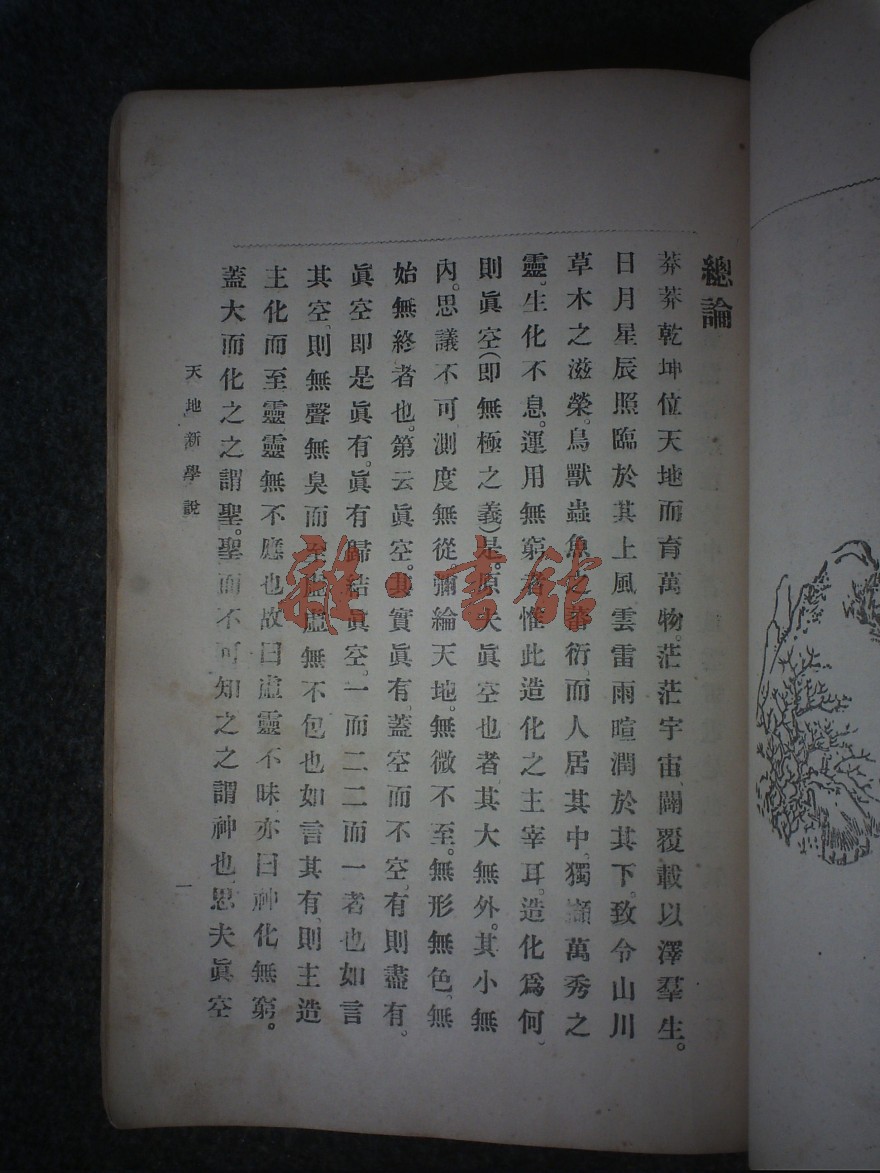 總論
莽莽乾坤位天地而育萬物。茫茫宇宙、闢覆載以澤羣生。
日月星辰照臨於其上風雲雷雨暄潤於其下。致令山川
草木之滋榮。鳥獸蟲魚之蕃衍、而人居其中。獨 萬秀之
靈。生化不息。運用無窮者惟此造化之主宰耳。造化爲何。
則眞空(即無極之義)是。原夫眞空也者其大無外。其小無
內。思議不可、測度無從彌綸天地。無微不至。無形無色、無
始無終者也。第云眞空。其實眞有。蓋空而不空、有則盡有。
眞空即是眞有。眞有歸結眞空。一而二二而一者也如言
其空、則無聲無臭而至虛虛無不包也如言其有、則主造
主化而至靈靈無不應也故曰虛靈不昧、亦曰神化無窮。
蓋大而化之之謂聖。聖而不可知之之謂神也、思夫眞空
天地新學說
一
雜·書館